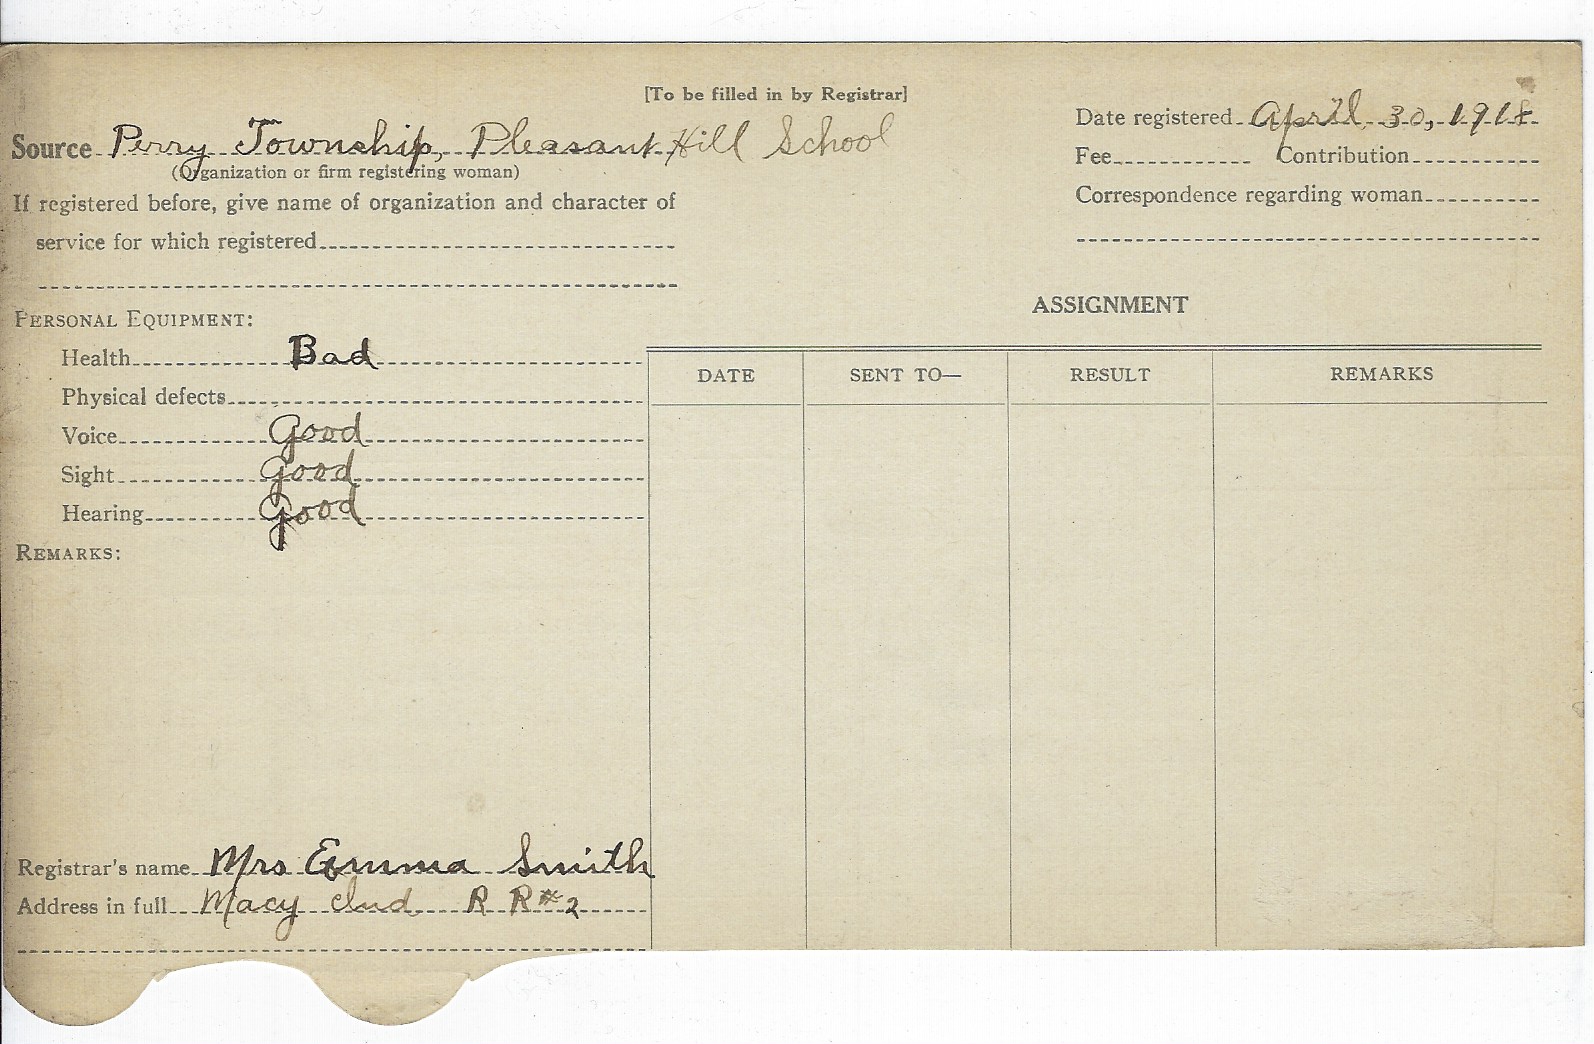 [To be filled in by Registrar]
Source Perry Township, Pleasant Hill School
(Organization or firm registering woman)
If registered before, give name of organization and character of
service for which registered
Date registered April 30, 1918
Fee Contribution
Correspondence regarding woman
PERSONAL EQUIPMENT:
Health Bad
Physical defects
Voice Good
Sight Good
Hearing Good
REMARKS:
ASSIGNMENT
DATE SENT TO— RESULT REMARKS
Registrar's name Mrs Emma Smith
Address in full Macy Ind. R R # 2